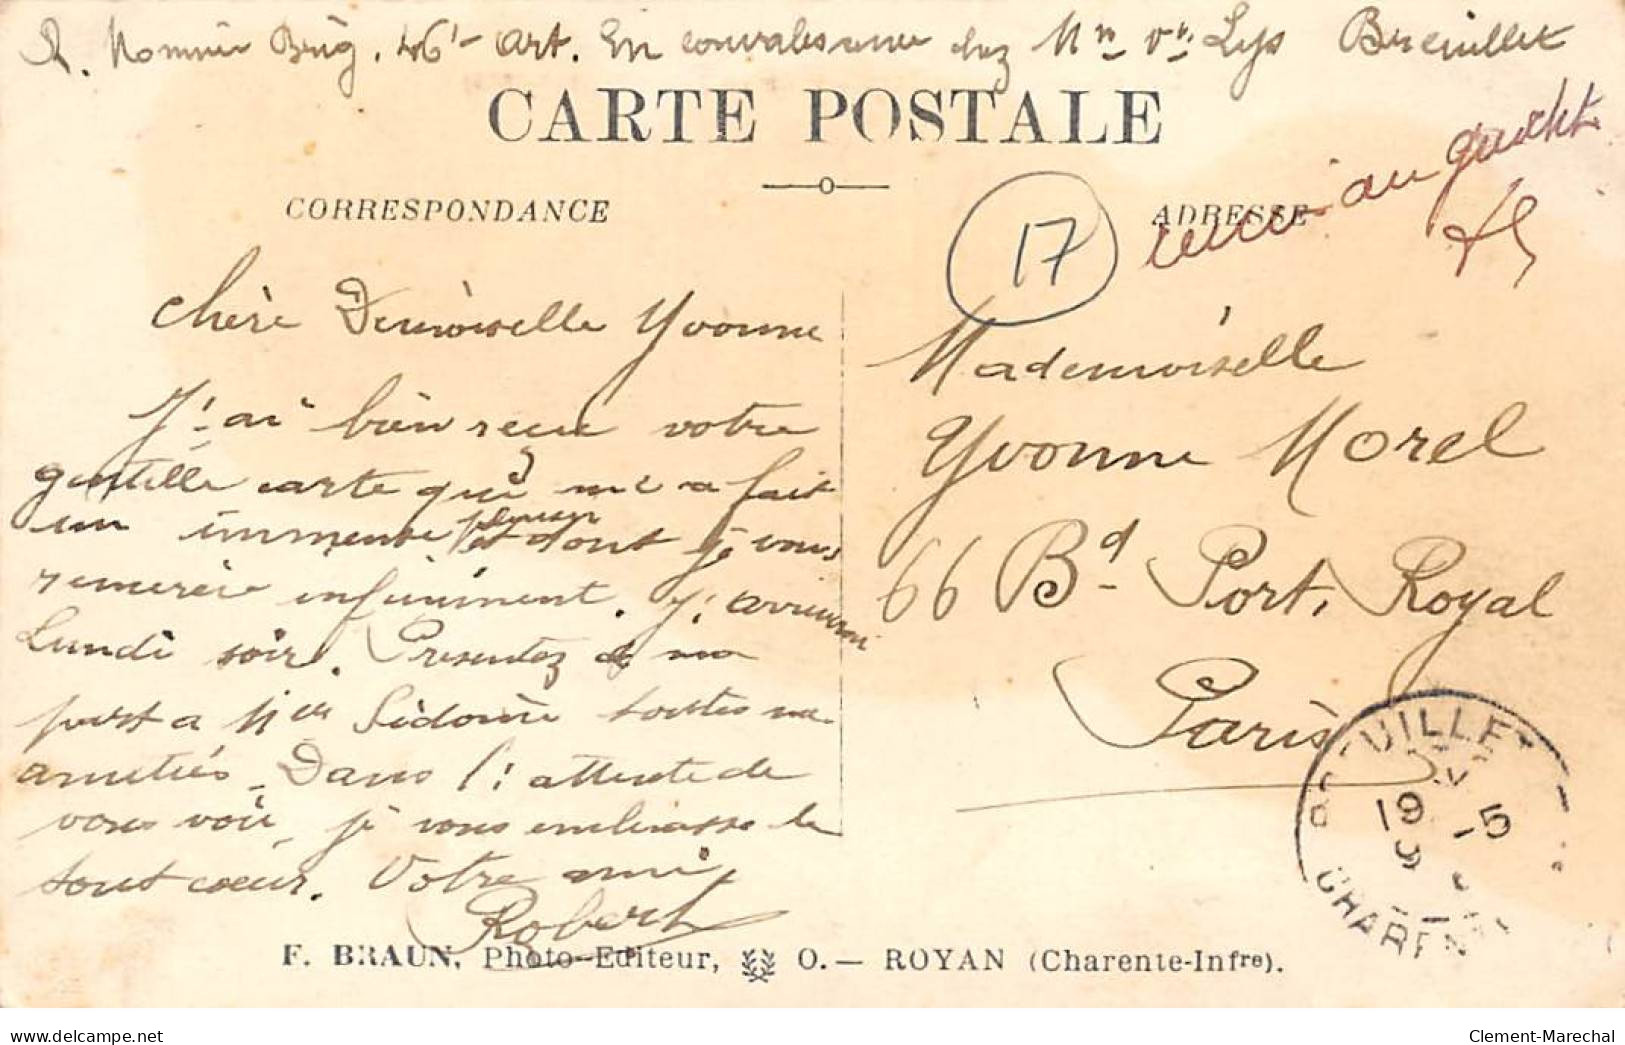 R. Monnier Brig. 46e Art. En convalescence chez Mme Vve Lys Breuillet
CARTE POSTALE
CORRESPONDANCE
ADRESSE
au guichet
17
Chère Demoiselle Yvonne
J'ai bien reçue votre
gentille carte qui me a fait
un immense plaisir et dont je vous
remercie infiniment. J'arriverai
Lundi soir. Presentez de ma
part a Mlle Sidonie toutes mes
amitiés. Dans l'attente de
vous voir, je vous embrasse de
tout cœur. Votre ami
Robert
Mademoiselle
Yvonne Morel
66 Bd Port. Royal
Paris
BREUILLET
19 -5
CHARENTE
F. BRAUN, Photo-Editeur, O. — ROYAN (Charente-Infre).
www.delcampe.net
Clement-Marechal